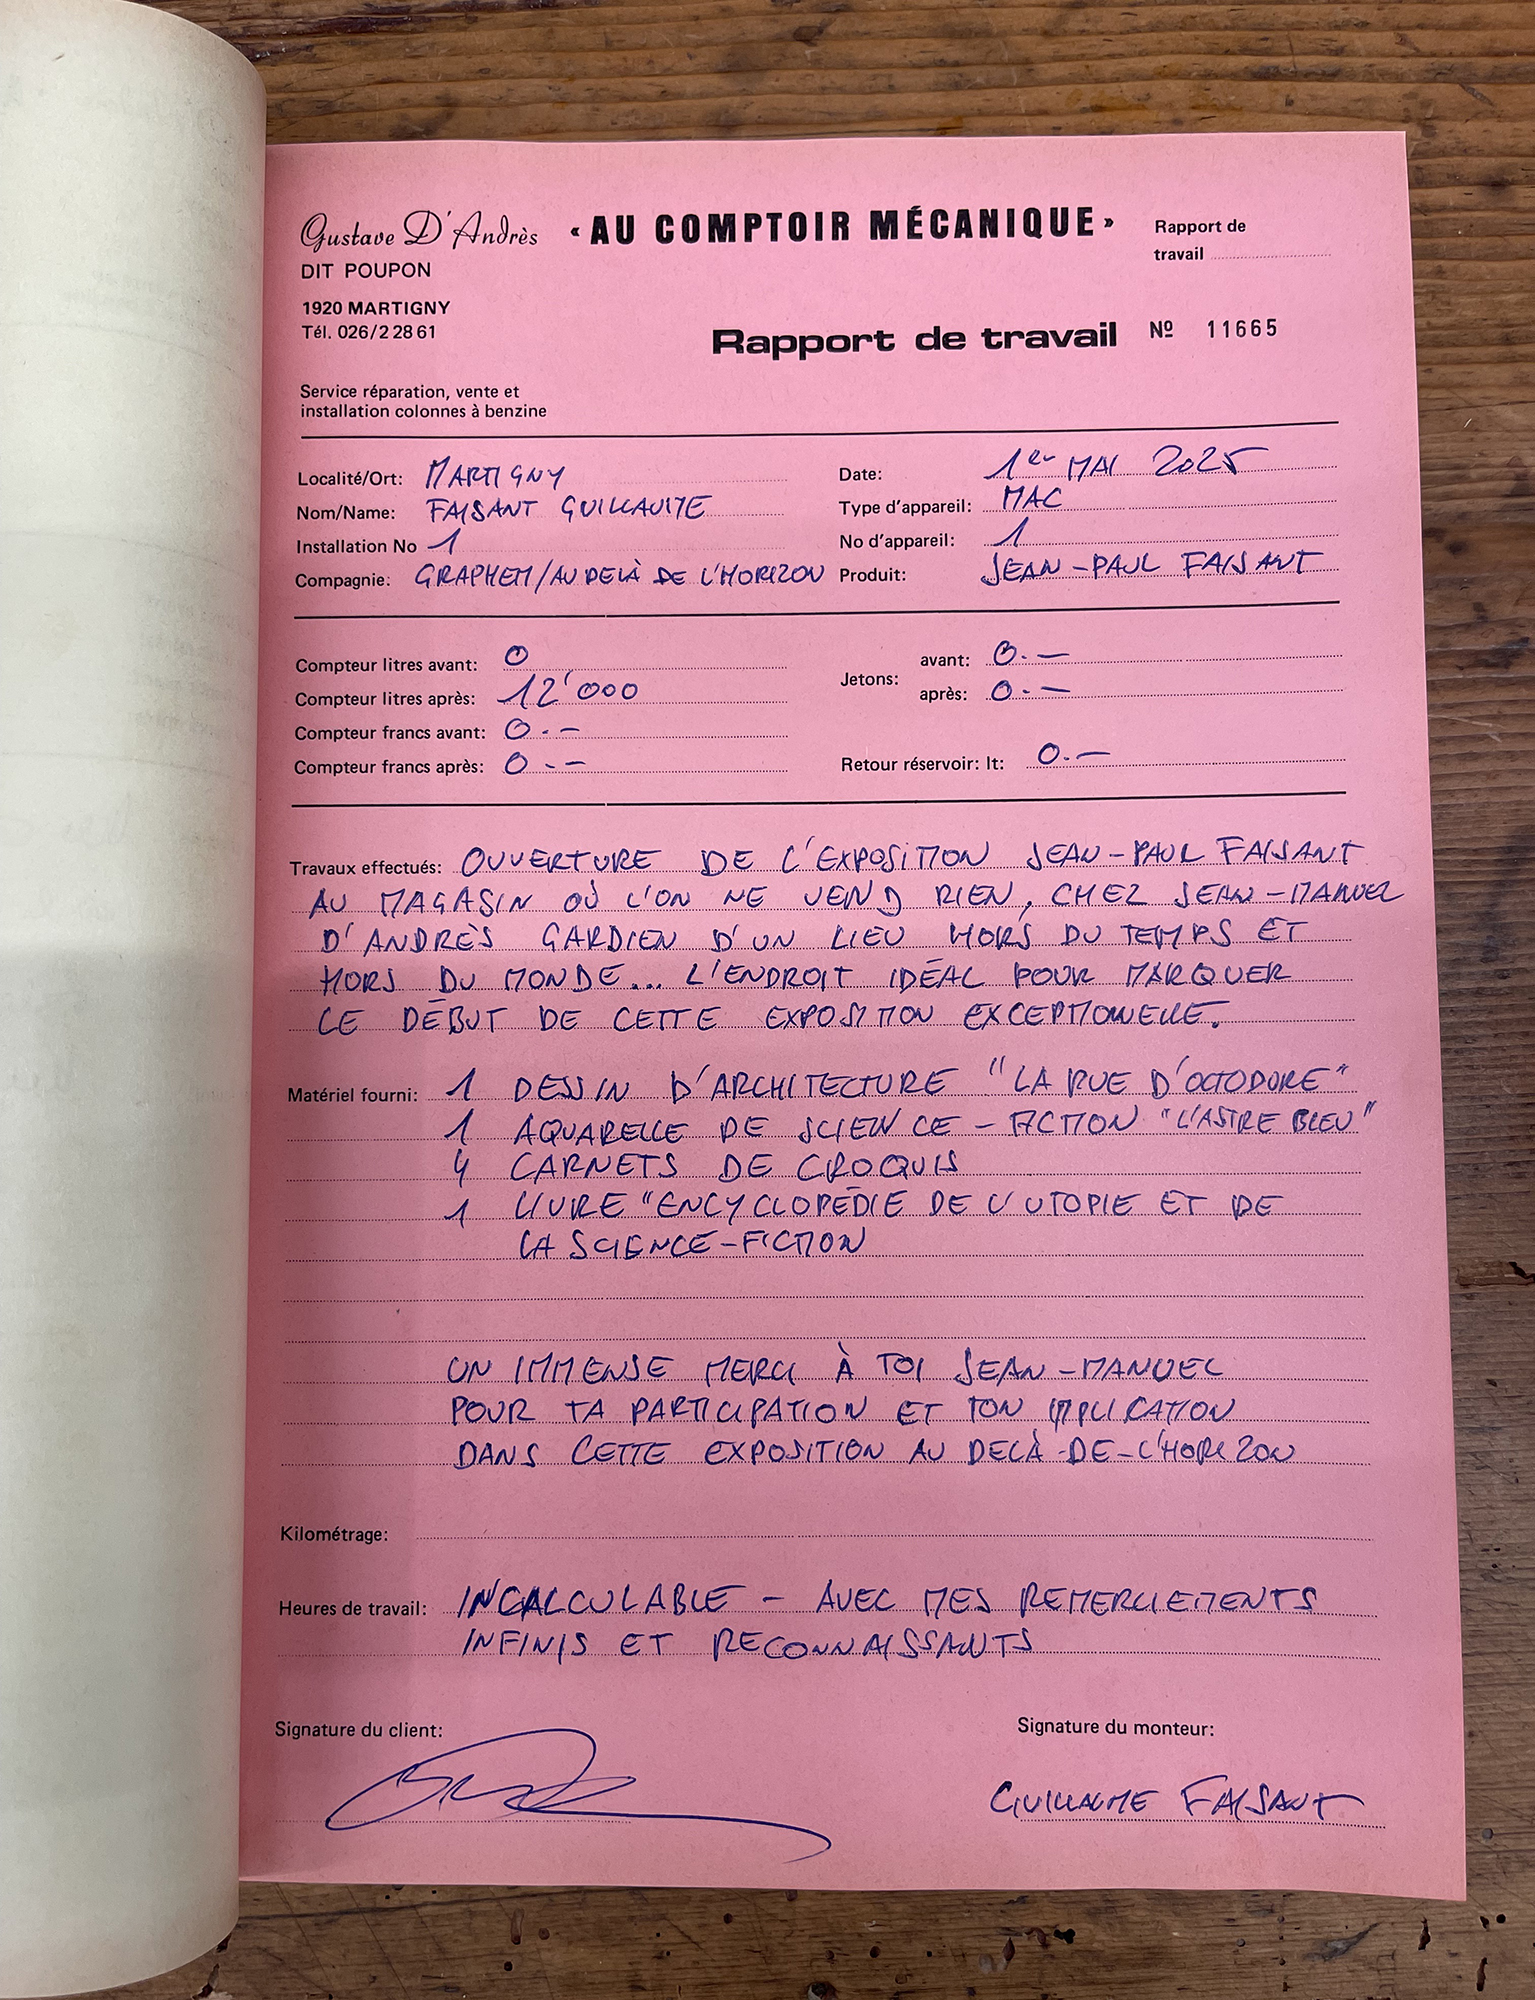 Gustave D'Andrès
« AU COMPTOIR MÉCANIQUE »
Rapport de
travail
DIT POUPON
1920 MARTIGNY
Tél. 026/2 28 61
Rapport de travail Nº 11665
Service réparation, vente et
installation colonnes à benzine
Localité/Ort: MARTIGNY
Date: 1er MAI 2025
Nom/Name: FAISANT GUILLAUME
Type d'appareil: MAC
Installation No 1
No d'appareil: 1
Compagnie: GRAPHEM/AU DELÀ DE L'HORIZON
Produit: JEAN-PAUL FAISANT
Compteur litres avant: 0
Compteur litres après: 12'000
Compteur francs avant: 0.-
Compteur francs après: 0.-
Jetons:
avant: 0.-
après: 0.-
Retour réservoir: lt: 0.-
Travaux effectués: OUVERTURE DE L'EXPOSITION JEAN-PAUL FAISANT
AU MAGASIN OÙ L'ON NE VEND RIEN, CHEZ JEAN-MANUEL
D'ANDRÈS GARDIEN D'UN LIEU HORS DU TEMPS ET
HORS DU MONDE... L'ENDROIT IDÉAL POUR MARQUER
LE DÉBUT DE CETTE EXPOSITION EXCEPTIONNELLE.
Matériel fourni: 1 DESSIN D'ARCHITECTURE "LA RUE D'OCTODURE"
1 AQUARELLE DE SCIENCE-FICTION "L'ASTRE BLEU"
4 CARNETS DE CROQUIS
1 LIVRE "ENCYCLOPÉDIE DE L'UTOPIE ET DE
LA SCIENCE-FICTION
UN IMMENSE MERCI À TOI JEAN-MANUEL
POUR TA PARTICIPATION ET TON IMPLICATION
DANS CETTE EXPOSITION AU DELÀ-DE-L'HORIZON
Kilométrage:
Heures de travail: INCALCULABLE - AVEC MES REMERCIEMENTS
INFINIS ET RECONNAISSANTS
Signature du client:
Signature du monteur:
GUILLAUME FAISANT